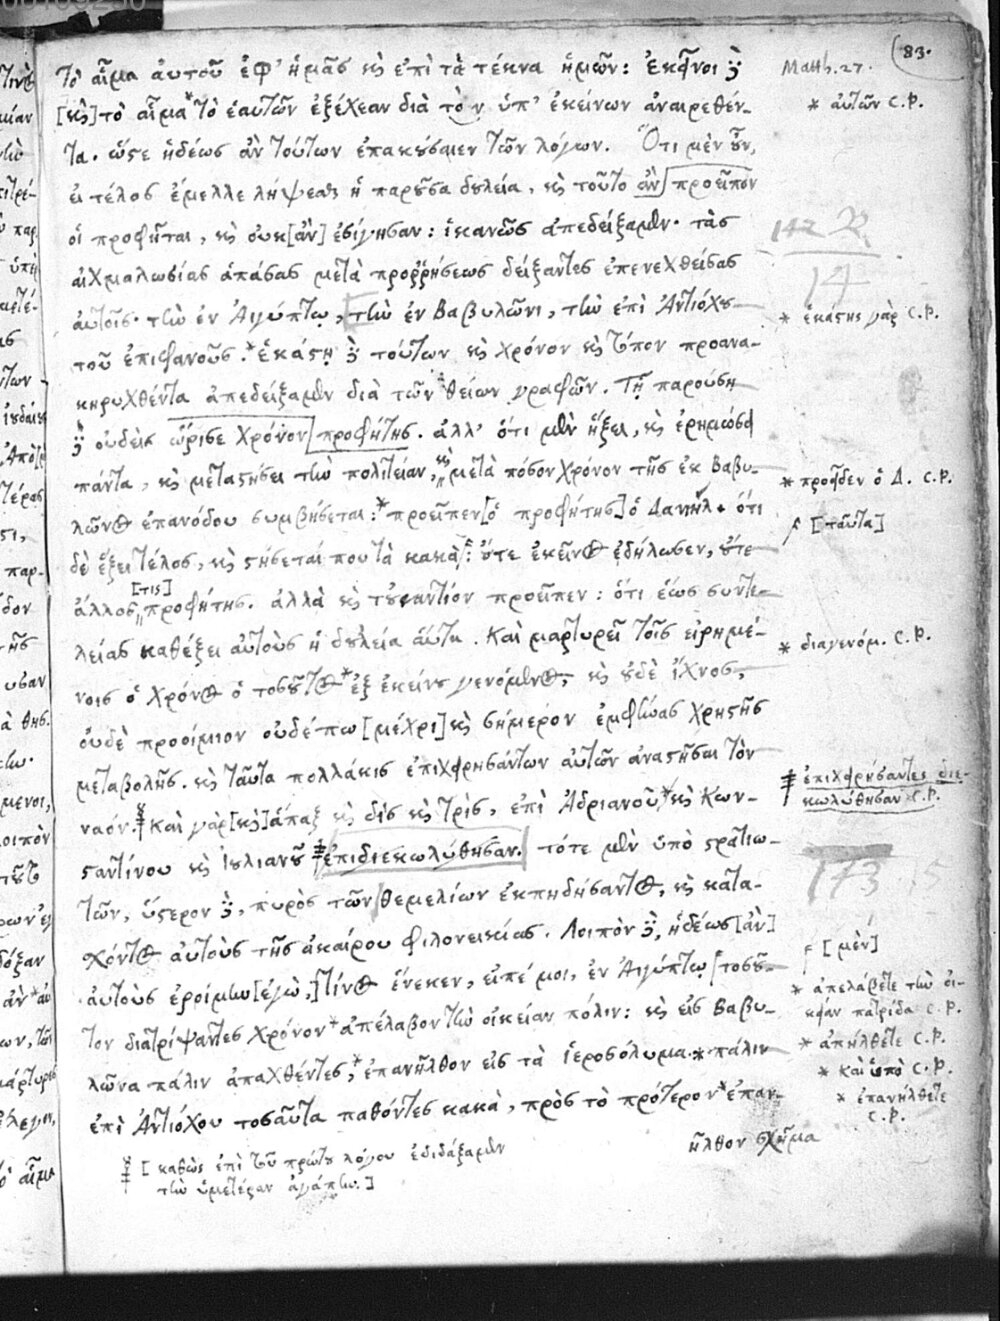 83.
Matth. 27.
τὸ αἷμα αὐτοῦ ἐφ' ἡμᾶς κ̀ ἐπὶ τὰ τέκνα ἡμῶν: ἐκεῖνοι δὲ
[κ̀] τὸ αἷμα * τὸ ἑαυτῶν ἐξέχεαν διὰ τὸν ὑπ' ἐκείνων ἀναιρεθέν-
* αὐτῶν C.P.
τα. ὥστε ἡδέως ἂν τούτων ἐπακούσαιεν τῶν λόγων. Ὅτι μὲν οὖν,
εἰ τέλος ἔμελλε λήψεσθαι ἡ παροῦσα δουλεία, κ̀ τοῦτο ἂν προεῖπον
οἱ προφῆται, κ̀ οὐκ [ἂν] ἐσίγησαν: ἱκανῶς ἀπεδείξαμεν· τὰς
αἰχμαλωσίας ἁπάσας μετὰ προῤῥήσεως δείξαντες ἐπενεχθείσας
αὐτοῖς· τὴν ἐν Αἰγύπτῳ, τὴν ἐν Βαβυλῶνι, τὴν ἐπὶ Ἀντιόχου
τοῦ ἐπιφανοῦς. * ἑκάστη δὲ τούτων κ̀ χρόνον κ̀ τόπον προανα-
* ἑκάστης γὰρ C.P.
κηρυχθέντα ἀπεδείξαμεν διὰ τῶν θείων γραφῶν. Τῇ παρούσῃ
δὲ οὐδεὶς ὥρισε χρόνον προφήτης. ἀλλ' ὅτι μὲν ἥξει, κ̀ ἐρημώσει
πάντα, κ̀ μεταστήσει τὴν πολιτείαν, κ̀ μετὰ πόσον χρόνον τῆς ἐκ Βαβυ-
λῶνος ἐπανόδου συμβήσεται: * προεῖπεν [ὁ προφήτης] ὁ Δανιήλ. ὅτι
* προεῖδεν ὁ Δ. C.P.
δὲ ἕξει τέλος, κ̀ στήσεταί που τὰ κακὰ: οὔτε ἐκεῖνος ἐδήλωσεν, οὔτε
[ταῦτα]
ἄλλος [τις] προφήτης. ἀλλὰ κ̀ τοὐναντίον προεῖπεν: ὅτι ἕως συντε-
λείας καθέξει αὐτοὺς ἡ δουλεία αὕτη. Καὶ μαρτυρεῖ τοῖς εἰρημέ-
νοις ὁ χρόνος ὁ τοσοῦτος * ἐξ ἐκείνου γενόμενος, κ̀ οὐδὲ ἴχνος,
* διαγενόμ. C.P.
οὐδὲ προοίμιον οὐδέπω [μέχρι] κ̀ σήμερον ἐμφήνας χρηστῆς
μεταβολῆς. κ̀ ταῦτα πολλάκις ἐπιχειρησάντων αὐτῶν ἀναστῆσαι τὸν
ναόν. Καὶ γὰρ [κ̀] ἅπαξ κ̀ δὶς κ̀ τρὶς, ἐπὶ Ἀδριανοῦ * κ̀ Κων-
ἐπιχειρήσαντες διε-
κωλύθησαν C.P.
σταντίνου κ̀ Ἰουλιανοῦ ἐπιδιεκωλύθησαν. τότε μὲν ὑπὸ στρατιω-
τῶν, ὕστερον δὲ, πυρὸς τῶν θεμελίων ἐκπηδήσαντος, κ̀ κατα-
173
χόντος αὐτοὺς τῆς ἀκαίρου φιλονεικίας. Λοιπὸν δὲ, ἡδέως [ἂν]
[μὲν]
αὐτοὺς ἐροίμην [ἐγὼ,] τίνος ἕνεκεν, εἰπέ μοι, ἐν Αἰγύπτῳ τοσοῦ-
τον διατρίψαντες χρόνον * ἀπέλαβον τὴν οἰκείαν πόλιν: κ̀ εἰς Βαβυ-
* ἀπελάβετε τὴν οἰ-
κείαν πατρίδα C.P.
λῶνα πάλιν ἀπαχθέντες, * ἐπανῆλθον εἰς τὰ Ἱεροσόλυμα * πάλιν
* ἀπήλθετε C.P.
* καὶ ὑπὸ C.P.
ἐπὶ Ἀντιόχου τοσαῦτα παθόντες κακὰ, πρὸς τὸ πρότερον * ἐπαν-
* ἐπανήλθετε
C.P.
ῆλθον σχῆμα
[καθὼς ἐπὶ τοῦ πρώτου λόγου ἐδιδάξαμεν
τὴν ὑμετέραν ἀγάπην.]